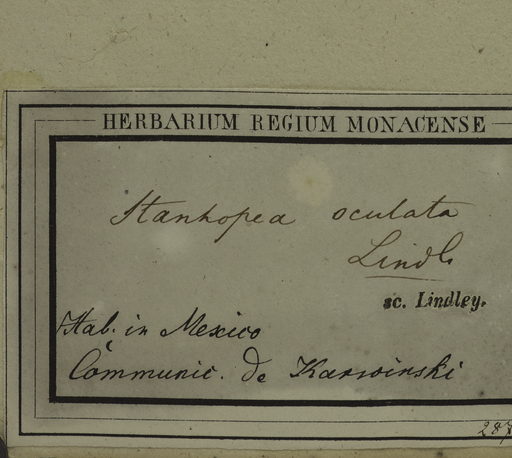 HERBARIUM REGIUM MONACENSE
Stanhopea oculata
Lindl.
sc. Lindley.
Hab. in Mexico
Communic. de Karwinski
287